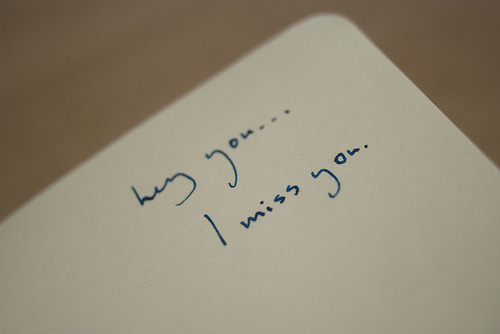 hey you...
I miss you.